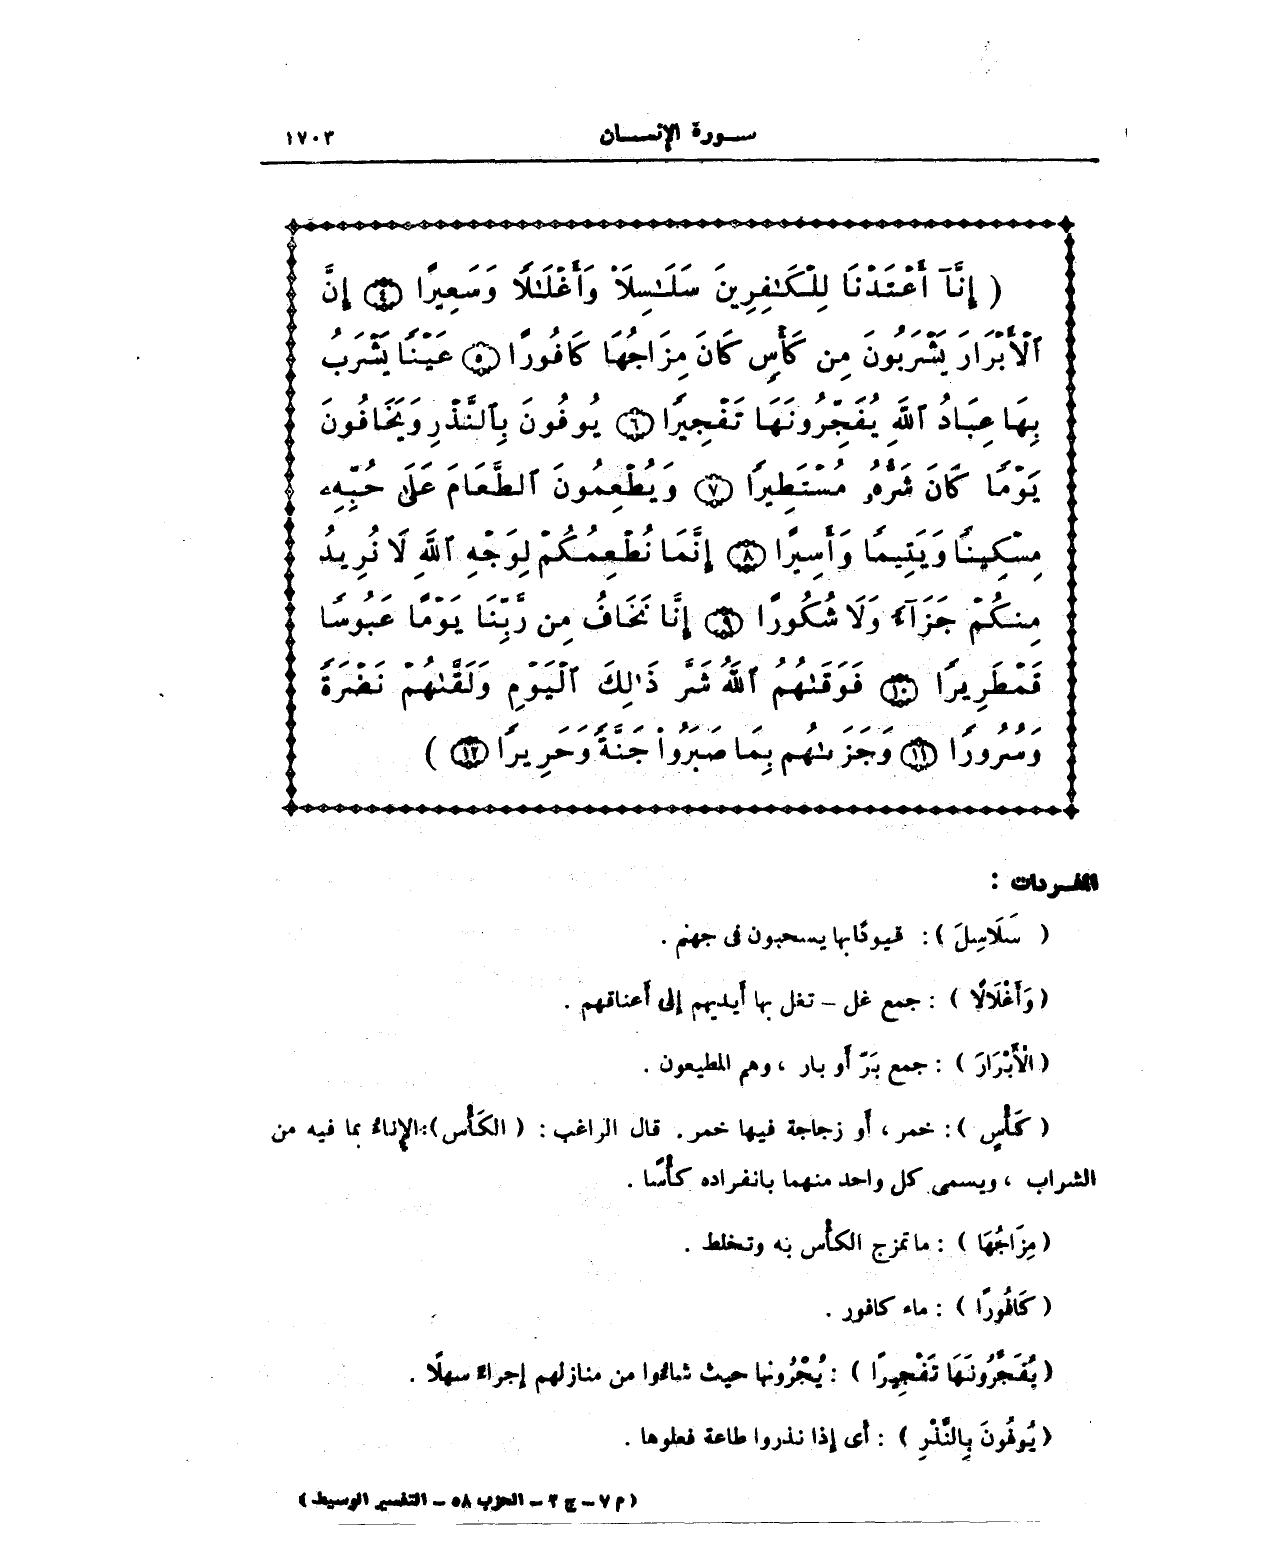 سورة الإنسان ١٧٠٣
( إِنَّآ أَعْتَدْنَا لِلْكَٰفِرِينَ سَلَٰسِلَاْ وَأَغْلَٰلًا وَسَعِيرًا ٤ إِنَّ
ٱلْأَبْرَارَ يَشْرَبُونَ مِن كَأْسٍ كَانَ مِزَاجُهَا كَافُورًا ٥ عَيْنًا يَشْرَبُ
بِهَا عِبَادُ ٱللَّهِ يُفَجِّرُونَهَا تَفْجِيرًا ٦ يُوفُونَ بِٱلنَّذْرِ وَيَخَافُونَ
يَوْمًا كَانَ شَرُّهُۥ مُسْتَطِيرًا ٧ وَيُطْعِمُونَ ٱلطَّعَامَ عَلَىٰ حُبِّهِۦ
مِسْكِينًا وَيَتِيمًا وَأَسِيرًا ٨ إِنَّمَا نُطْعِمُكُمْ لِوَجْهِ ٱللَّهِ لَا نُرِيدُ
مِنكُمْ جَزَآءً وَلَا شُكُورًا ٩ إِنَّا نَخَافُ مِن رَّبِّنَا يَوْمًا عَبُوسًا
قَمْطَرِيرًا ١٠ فَوَقَىٰهُمُ ٱللَّهُ شَرَّ ذَٰلِكَ ٱلْيَوْمِ وَلَقَّىٰهُمْ نَضْرَةً
وَسُرُورًا ١١ وَجَزَىٰهُم بِمَا صَبَرُواْ جَنَّةً وَحَرِيرًا ١٢ )
المفردات :
( سَلَاسِلَ ) : قيودًا بها يسحبون فى جهنم .
( وَأَغْلَالًا ) : جمع غل – تغل بها أيديهم إلى أعناقهم .
( الْأَبْرَارَ ) : جمع بَرّ أو بار ، وهم المطيعون .
( كَأْسٍ ) : خمر ، أو زجاجة فيها خمر . قال الراغب : ( الكَأْس ) : الإناءُ بما فيه من
الشراب ، ويسمى كل واحد منهما بانفراده كأْسًا .
( مِزَاجُهَا ) : ما تمزج الكأْس به وتخلط .
( كَافُورًا ) : ماء كافور .
( يُفَجِّرُونَهَا تَفْجِيرًا ) : يُجْرُونها حيث شاءُوا من منازلهم إجراءً سهلًا .
( يُوفُونَ بِالنَّذْرِ ) : أى إذا نذروا طاعة فعلوها .
( م ٧ – ج ٣ – الحزب ٥٨ – التفسير الوسيط )